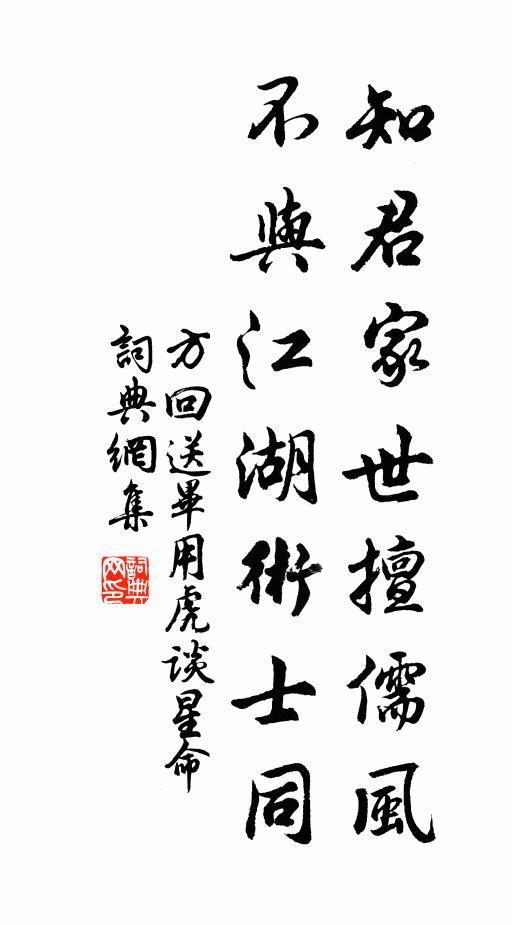 知君家世擅儒風
不與江湖術士同
方回送畢用虎談星命
詞典網集
詞典网印